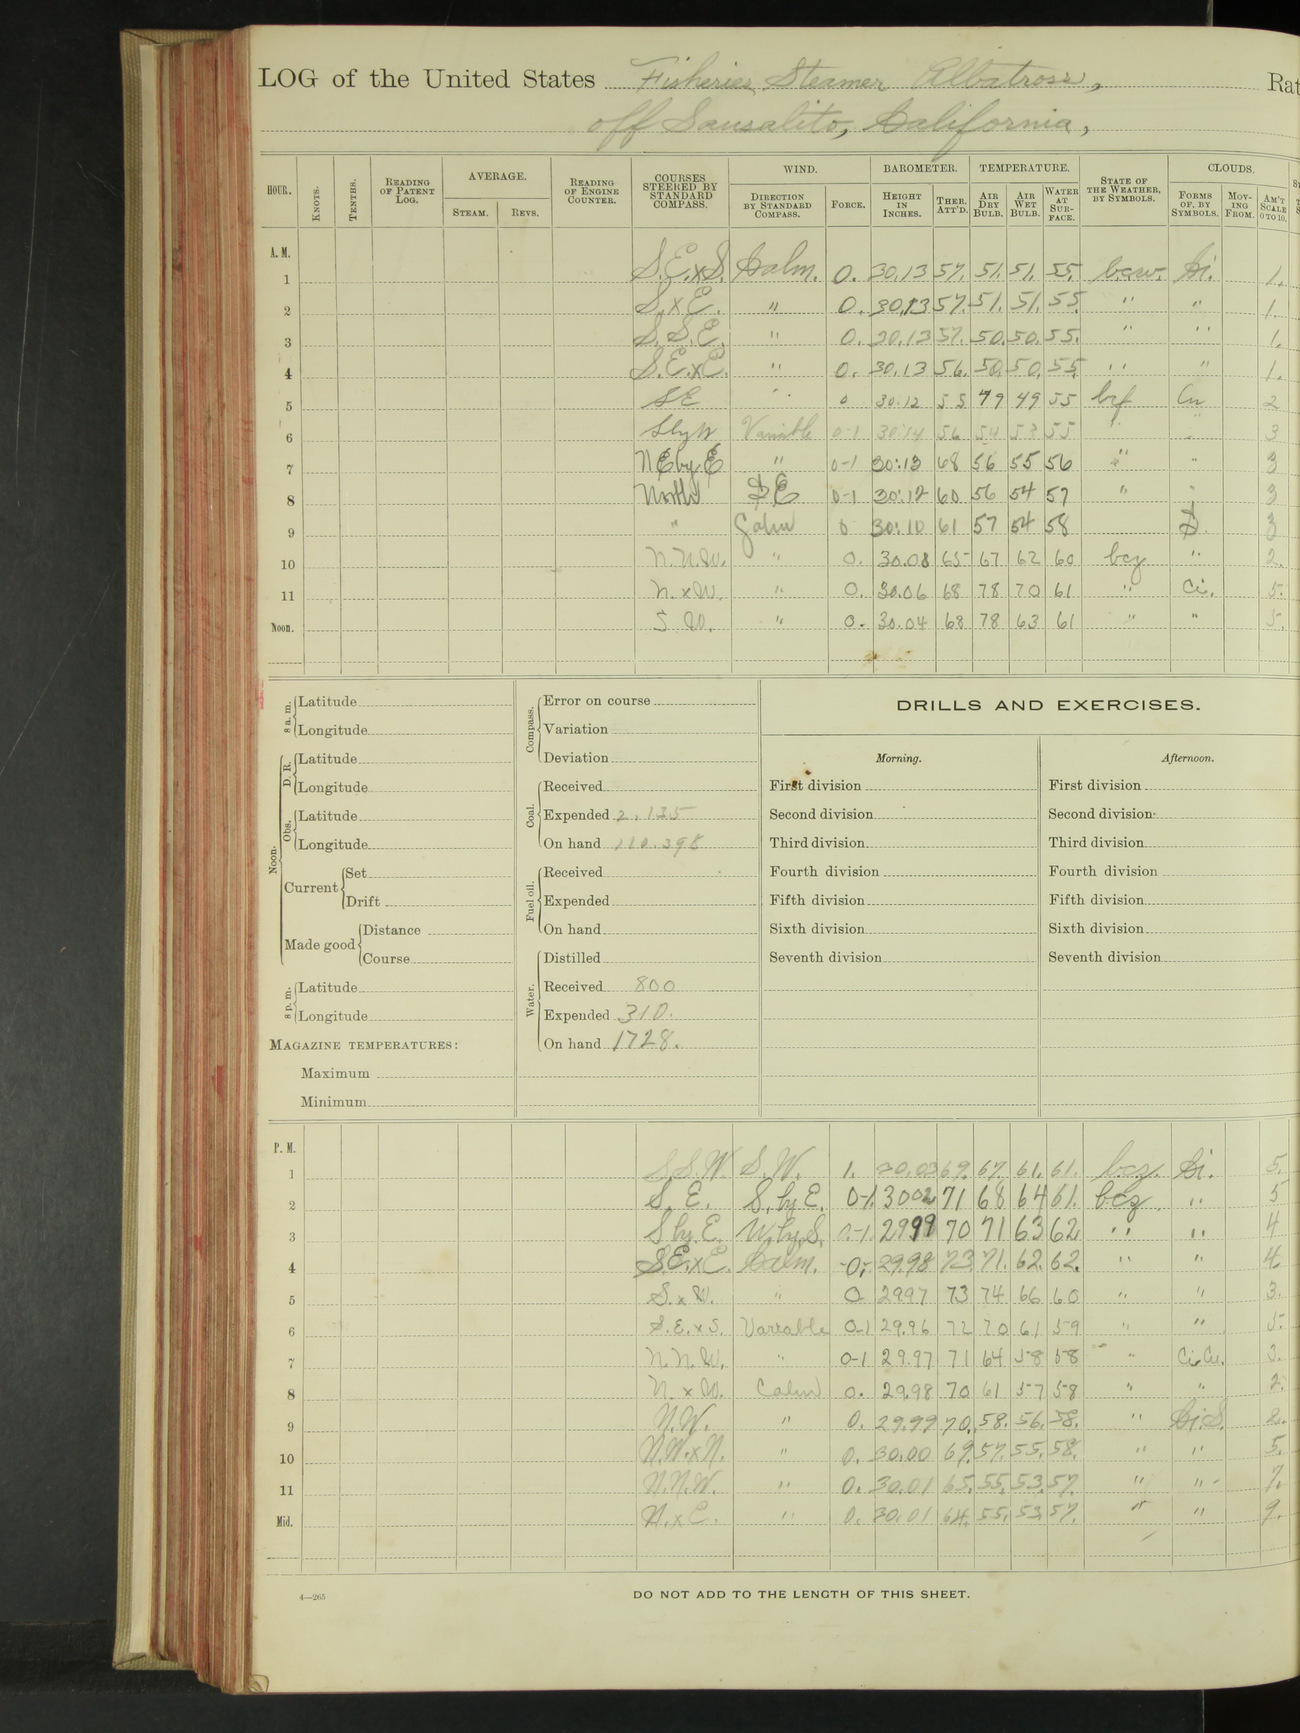 LOG of the United States Fisheries Steamer Albatross, Rat
off Sausalito, California,
HOUR. KNOTS. TENTHS. READING OF PATENT LOG. AVERAGE. STEAM. REVS. READING OF ENGINE COUNTER. COURSES STEERED BY STANDARD COMPASS. WIND. DIRECTION BY STANDARD COMPASS. FORCE. BAROMETER. HEIGHT IN INCHES. THER. ATT'D. TEMPERATURE. AIR DRY BULB. AIR WET BULB. WATER AT SURFACE. STATE OF THE WEATHER, BY SYMBOLS. CLOUDS. FORMS OF, BY SYMBOLS. MOVING FROM. AM'T SCALE 0 TO 10.
A. M.
1 S.E.xS. Calm. 0. 30.13 57. 51. 51. 55. bcw. Ci. 1.
2 S.xE. " 0. 30.13 57. 51. 51. 55. " " 1.
3 S.S.E. " 0. 30.13 57. 50. 50. 55. " " 1.
4 S.E.xE. " 0. 30.13 56. 50. 50. 55. " " 1.
5 SE " 0 30.12 55 49 49 55 bcf Cu 2
6 SbyW Variable 0-1 30.14 56 54 53 55 " " 3
7 NEbyE " 0-1 30.13 68 56 55 56 " " 3
8 North SE 0-1 30.12 60 56 54 57 " " 3
9 " Calm 0 30.10 61 57 54 58 S. 3
10 N.N.W. " 0. 30.08 65 67 62 60 bcz " 2.
11 N.xW. " 0. 30.06 68 78 70 61 " Ci. 5.
Noon. S.W. " 0. 30.04 68 78 63 61 " " 5.
8 a. m. Latitude
Longitude
Noon. D. R. Latitude
Longitude
Obs. Latitude
Longitude
Current Set
Drift
Made good Distance
Course
8 p. m. Latitude
Longitude
MAGAZINE TEMPERATURES:
Maximum
Minimum
Compass. Error on course
Variation
Deviation
Coal. Received
Expended 2.135
On hand 110.398
Fuel oil. Received
Expended
On hand
Water. Distilled
Received 800
Expended 310.
On hand 1728.
DRILLS AND EXERCISES.
Morning. Afternoon.
First division First division
Second division Second division
Third division Third division
Fourth division Fourth division
Fifth division Fifth division
Sixth division Sixth division
Seventh division Seventh division
P. M.
1 S.S.W. S.W. 1. 30.03 69. 67. 61. 61. bcz. Ci. 5.
2 S. E. S. by E. 0-1. 3002 71 68 64 61. bcz " 5
3 S by E. W. by S. 0-1. 2999 70 71 63 62 " " 4
4 S.E.xE. Calm. -0- 29.98 73 71. 62. 62. " " 4.
5 S.xW. " 0 2997 73 74 66 60 " " 3.
6 S.E.xS. Variable 0-1 29.96 72 70 61 59 " " 5.
7 N.N.W. " 0-1 29.97 71 64 58 58 " Ci.Cu. 3.
8 N.xW. Calm 0. 29.98 70 61 57 58 " " 2.
9 N.W. " 0. 29.99 70. 58. 56. 58. " Ci.S. 2.
10 N.W.xN. " 0. 30.00 69. 57. 55. 58. " " 5.
11 N.N.W. " 0. 30.01 65. 55. 53. 57. " " 7.
Mid. N.xE. " 0. 30.01 64. 55. 53. 57. " " 9.
4—265 DO NOT ADD TO THE LENGTH OF THIS SHEET.